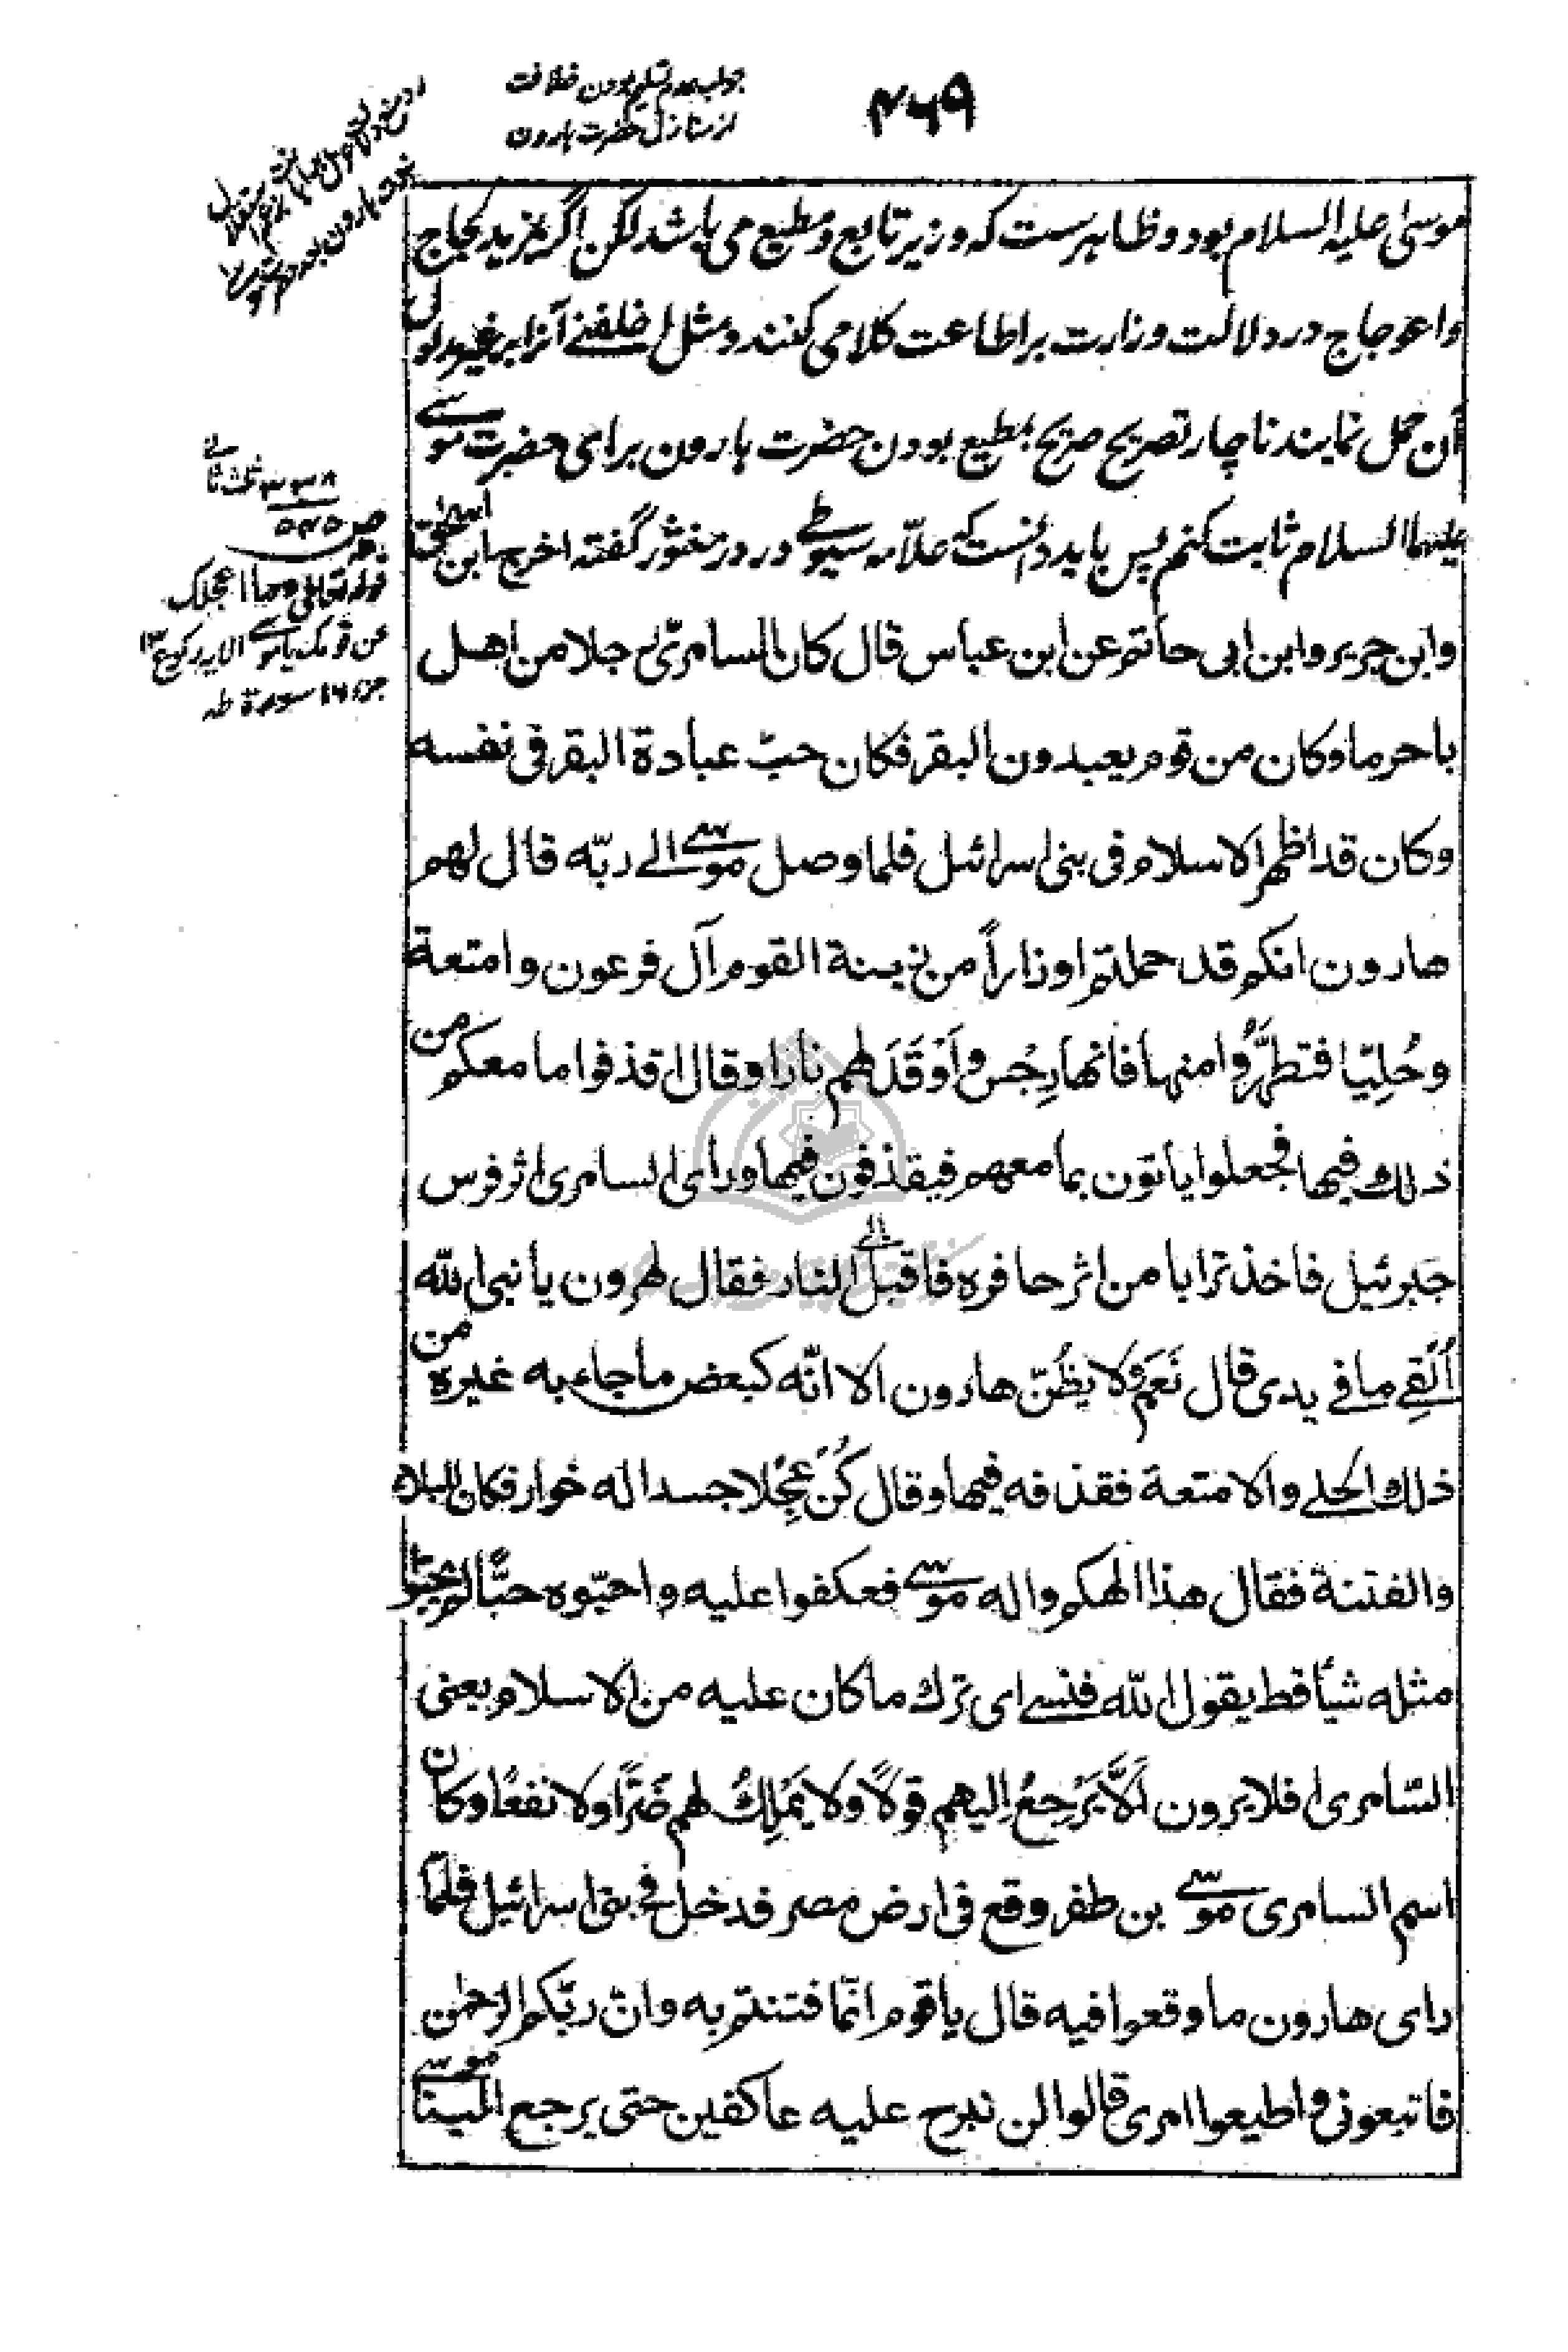 ۴۶۹
جواب عدم تسلیم بودن خلافت
از منازل حضرت هارون
موسیٰ علیه السلام بود و ظاهرست که وزیر تابع و مطیع می باشد لکن اگر بمزید لجاج
واعوجاج در دلالت وزارت بر اطاعت کلام می کنند و مثل اخلفنے آنرا بر غیر مدلول
آن حمل نمایند ناچار تصریح صریح بمطیع بودن حضرت هارون برای حضرت موسے
علیهما السلام ثابت کنم پس باید دانست که علّامه سیوطے در در منثور گفته اخرج ابن اسحٰق
وابن جریر وابن ابی حاتم عن ابن عباس قال کان السامریّ رجلا من اهل
باجرما وکان من قوم یعبدون البقر فکان حبّ عبادة البقر فی نفسه
وکان قد اظهر الاسلام فی بنی اسرائیل فلما وصل موسے الے ربّه قال لهم
هارون انکم قد حملتم اوزاراً من زینة القوم آل فرعون وامتعة
وحُلِیّا فتطهَّرُوا منها فانها رِجْس واَوْقَدَ لهم نارا وقال اقذفوا ما معکم من
ذلك فیها فجعلوا یاتون بما معهم فیقذفون فیها ورای السامری اثر فرس
جَبرئیل فاخذ ترابا من اثر حافره فاقبل الے النار فقال لهرون یا نبی الله
اُلقِے ما فے یدی قال نَعَم ولا یظُنّ هارون الا انّه کبعض ما جاء به غیره من
ذلك الحلے والامتعة فقذفه فیها وقال کُنْ عِجْلا جسدا له خوار فکان البلاء
والفتنة فقال هذا الهکم واله موسے فعکفوا علیه واحبّوه حبًّا لم یحبّوا
مثله شیأ قط یقول الله فنسے ای ترك ما کان علیه من الاسلام یعنی
السّامری افلا یرون اَلّا یَرْجِعُ الیهم قولاً ولا یَمْلِكُ لهم ضَرًّا ولا نفعًا وکان
اسم السامری موسے بن ظفر وقع فی ارض مصر فدخل فی بنی اسرائیل فلمّا
رای هارون ما وقعوا فیه قال یا قوم انّما فتنتم به وانّ ربّکم الرحمٰن
فاتبعونی واطیعوا امری قالوا لن نبرح علیه عاکفین حتی یرجع الینا موسے
ص ۵۲۵
قوله تعالی وما اعجلک
عن قومک یا موسے الایه رکوع ۱۳
جزء ۱۶ سورة طه